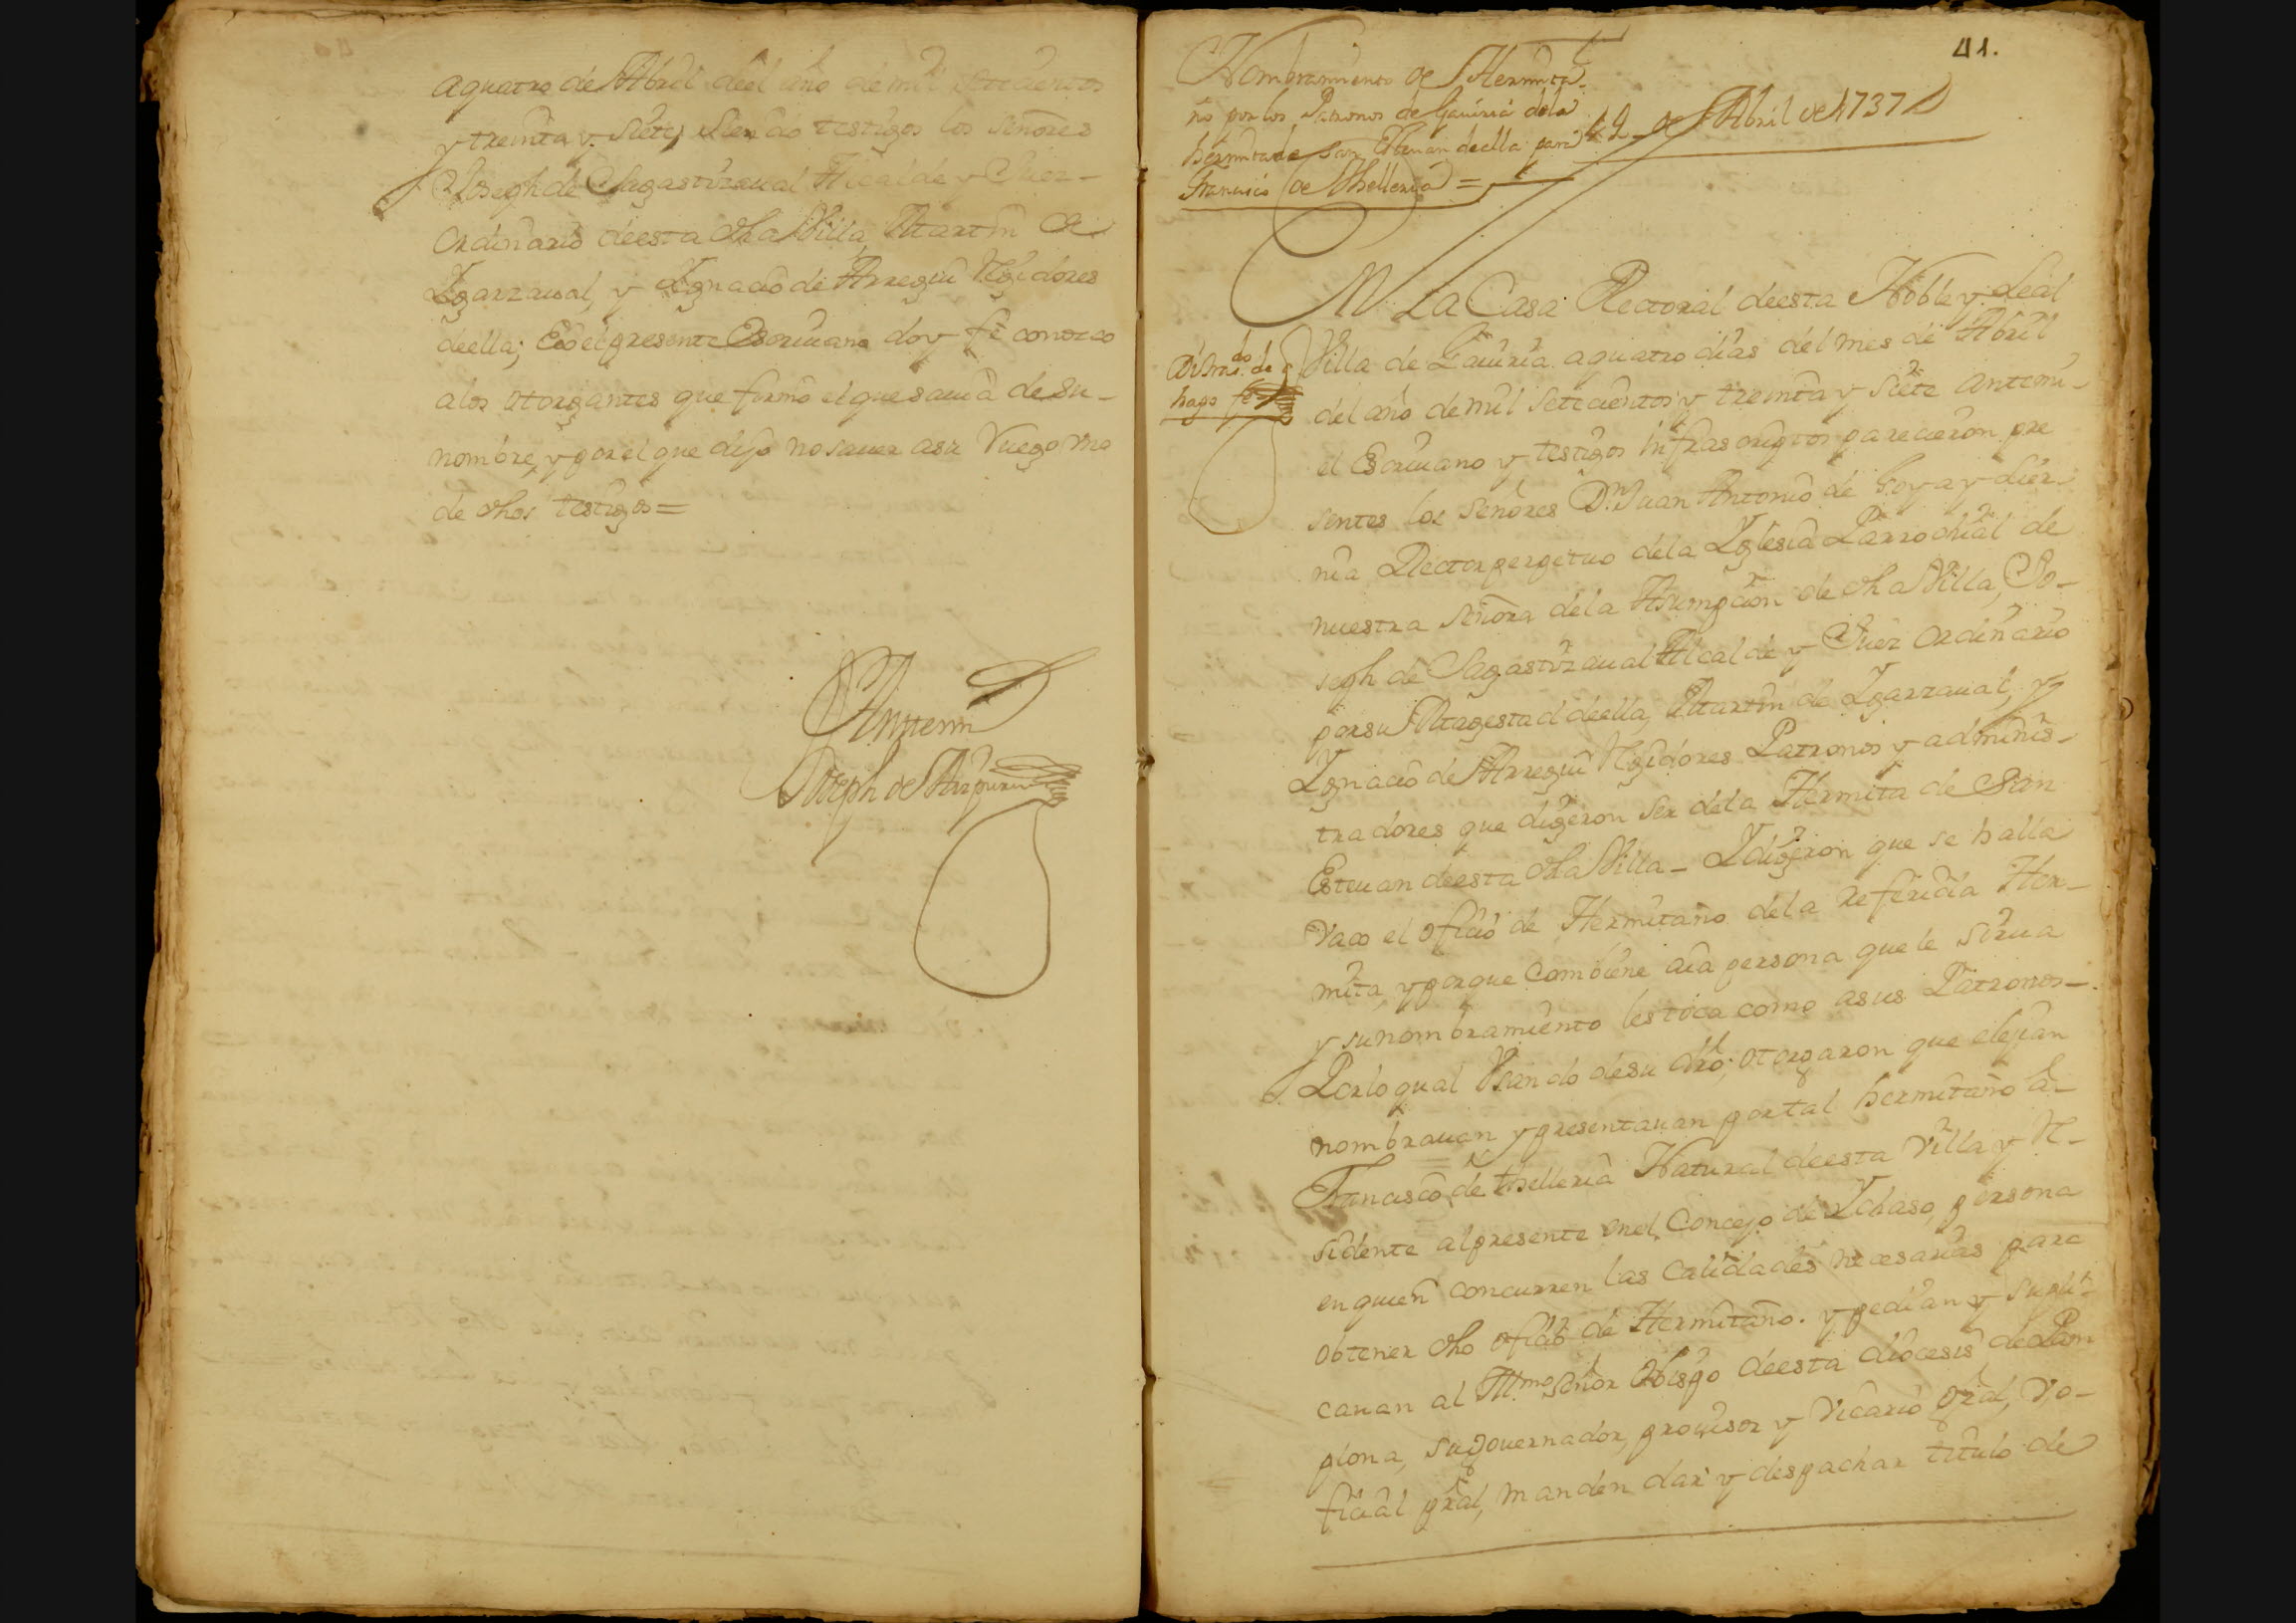 aquatro de Abril deel año de mil setecientos
y treinta y siete, siendo testigos los Señores
Joseph de Sagastizaual Alcalde y Juez
Ordinario deesta dha Villa, Martin de
Ygarzaual, y Ygnacio de Arregui Regidores
deella; E yo el presente Escriuano doy fe conozco
alos otorgantes que firmo el que sauia de su
nombre, y por el que dijo no sauer asu ruego uno
de dhos testigos =
Antemi
Joseph de Aizpuru
41.
Nombramiento de Hermita
ño por los Patronos de Gauiria dela
hermita de San Esteuan deella para
Francisco de Thelleria =
4 de Abril de 1737
En La Casa Rectoral deesta Noble y Leal
Villa de Gauiria aquatro dias del mes de Abril
hago fe
del año de mil setecientos y treinta y siete antemi
el Escriuano y testigos infrascriptos parecieron pre
sentes los Señores Dn. Juan Antonio de Goya y
nia Rector perpetuo dela Yglesia Parrochial de
nuestra Señora dela Asumpcion de dha Villa, Jo-
seph de Sagastizaual Alcalde y Juez Ordinario
por su Magestad deella, Martin de Ygarzaual, y
Ygnacio de Arregui Regidores Patronos y adminis-
tradores que digeron ser dela Hermita de San
Esteuan deesta dha Villa - Y digeron que se halla
vaco el oficio de Hermitaño dela referida Her-
mita, y porque combiene aia persona que le sirua
y su nombramiento les toca como asus Patronos -
Por lo qual Vsando desu dro, otorgaron que elejian
nombrauan y presentauan por tal hermitaño a
Francisco de thelleria Natural deesta Villa y Re-
sidente alpresente enel Concejo de Ychaso, persona
en quien concurren las calidades necesarias para
obtener dho oficio de Hermitaño. y pedian y supli-
cauan al Illmo Señor Obispo deesta diocesis de Pam
plona, su gouernador, prouisor y Vicario gral, V, o-
ficial pral, manden dar y despachar titulo de